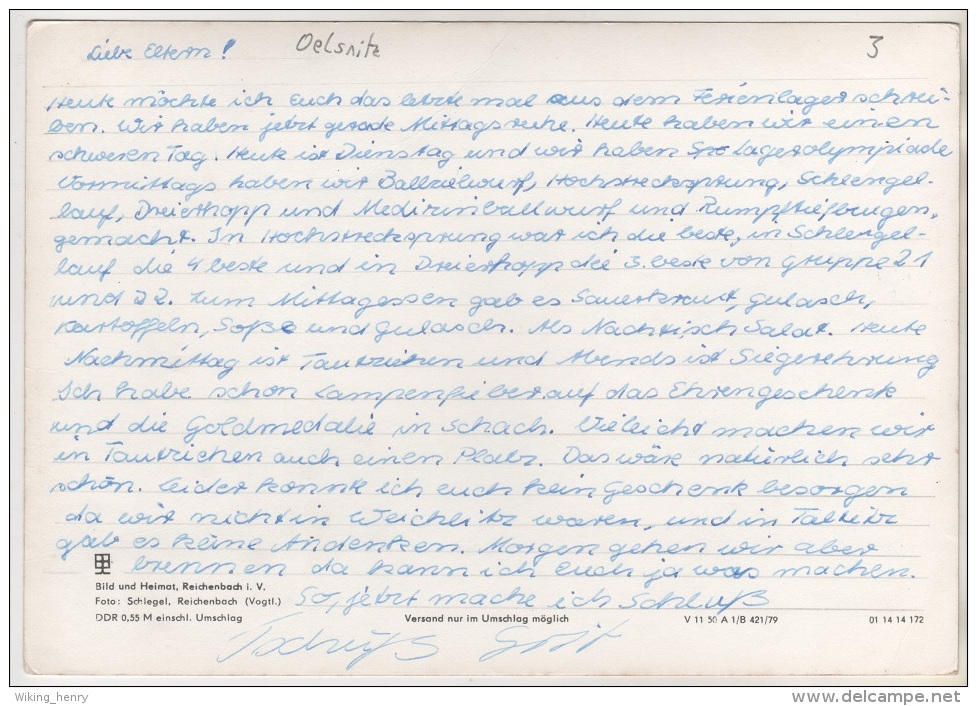 Liebe Eltern! Oelsnitz 3
Heute möchte ich Euch das letzte mal aus dem Ferienlager schrei-
ben. Wir haben jetzt gerade Mittagsruhe. Heute haben wir einen
schweren Tag. Heute ist Dienstag und wir haben Lagerolympiade
Vormittags haben wir Ballzielwurf, Hochstrecksprung, Schlengel-
lauf, Dreierhopp und Medizinballwurf und Rumpftiefbeugen,
gemacht. In Hochstrecksprung war ich die beste, in Schlengel-
lauf die 4 beste und in Dreierhopp die 3. beste von Gruppe 21
und 22. Zum Mittagessen gab es Sauerkraut, Gulasch,
Kartoffeln, Soße und Gulasch. Als Nachtisch Salat. Heute
Nachmittag ist Tautziehen und Abends ist Siegerehrung
Ich habe schon Lampenfieber auf das Ehrengeschenk
und die Goldmedalie in Schach. Vieleicht machen wir
in Tautzichen auch einen Platz. Das wäre natürlich sehr
schön. Leider konnte ich euch kein Geschenk besorgen
da wir nicht in Weichlitz waren, und in Taltitz
gab es keine Andenken. Morgen gehen wir aber
brennen da kann ich Euch ja was machen.
So, jetzt mache ich Schluß
Tschüß
Bild und Heimat, Reichenbach i. V.
Foto: Schlegel, Reichenbach (Vogtl.)
DDR 0,55 M einschl. Umschlag Versand nur im Umschlag möglich V 11 50 A 1/B 421/79 01 14 14 172
Wiking_henry delcampe.net